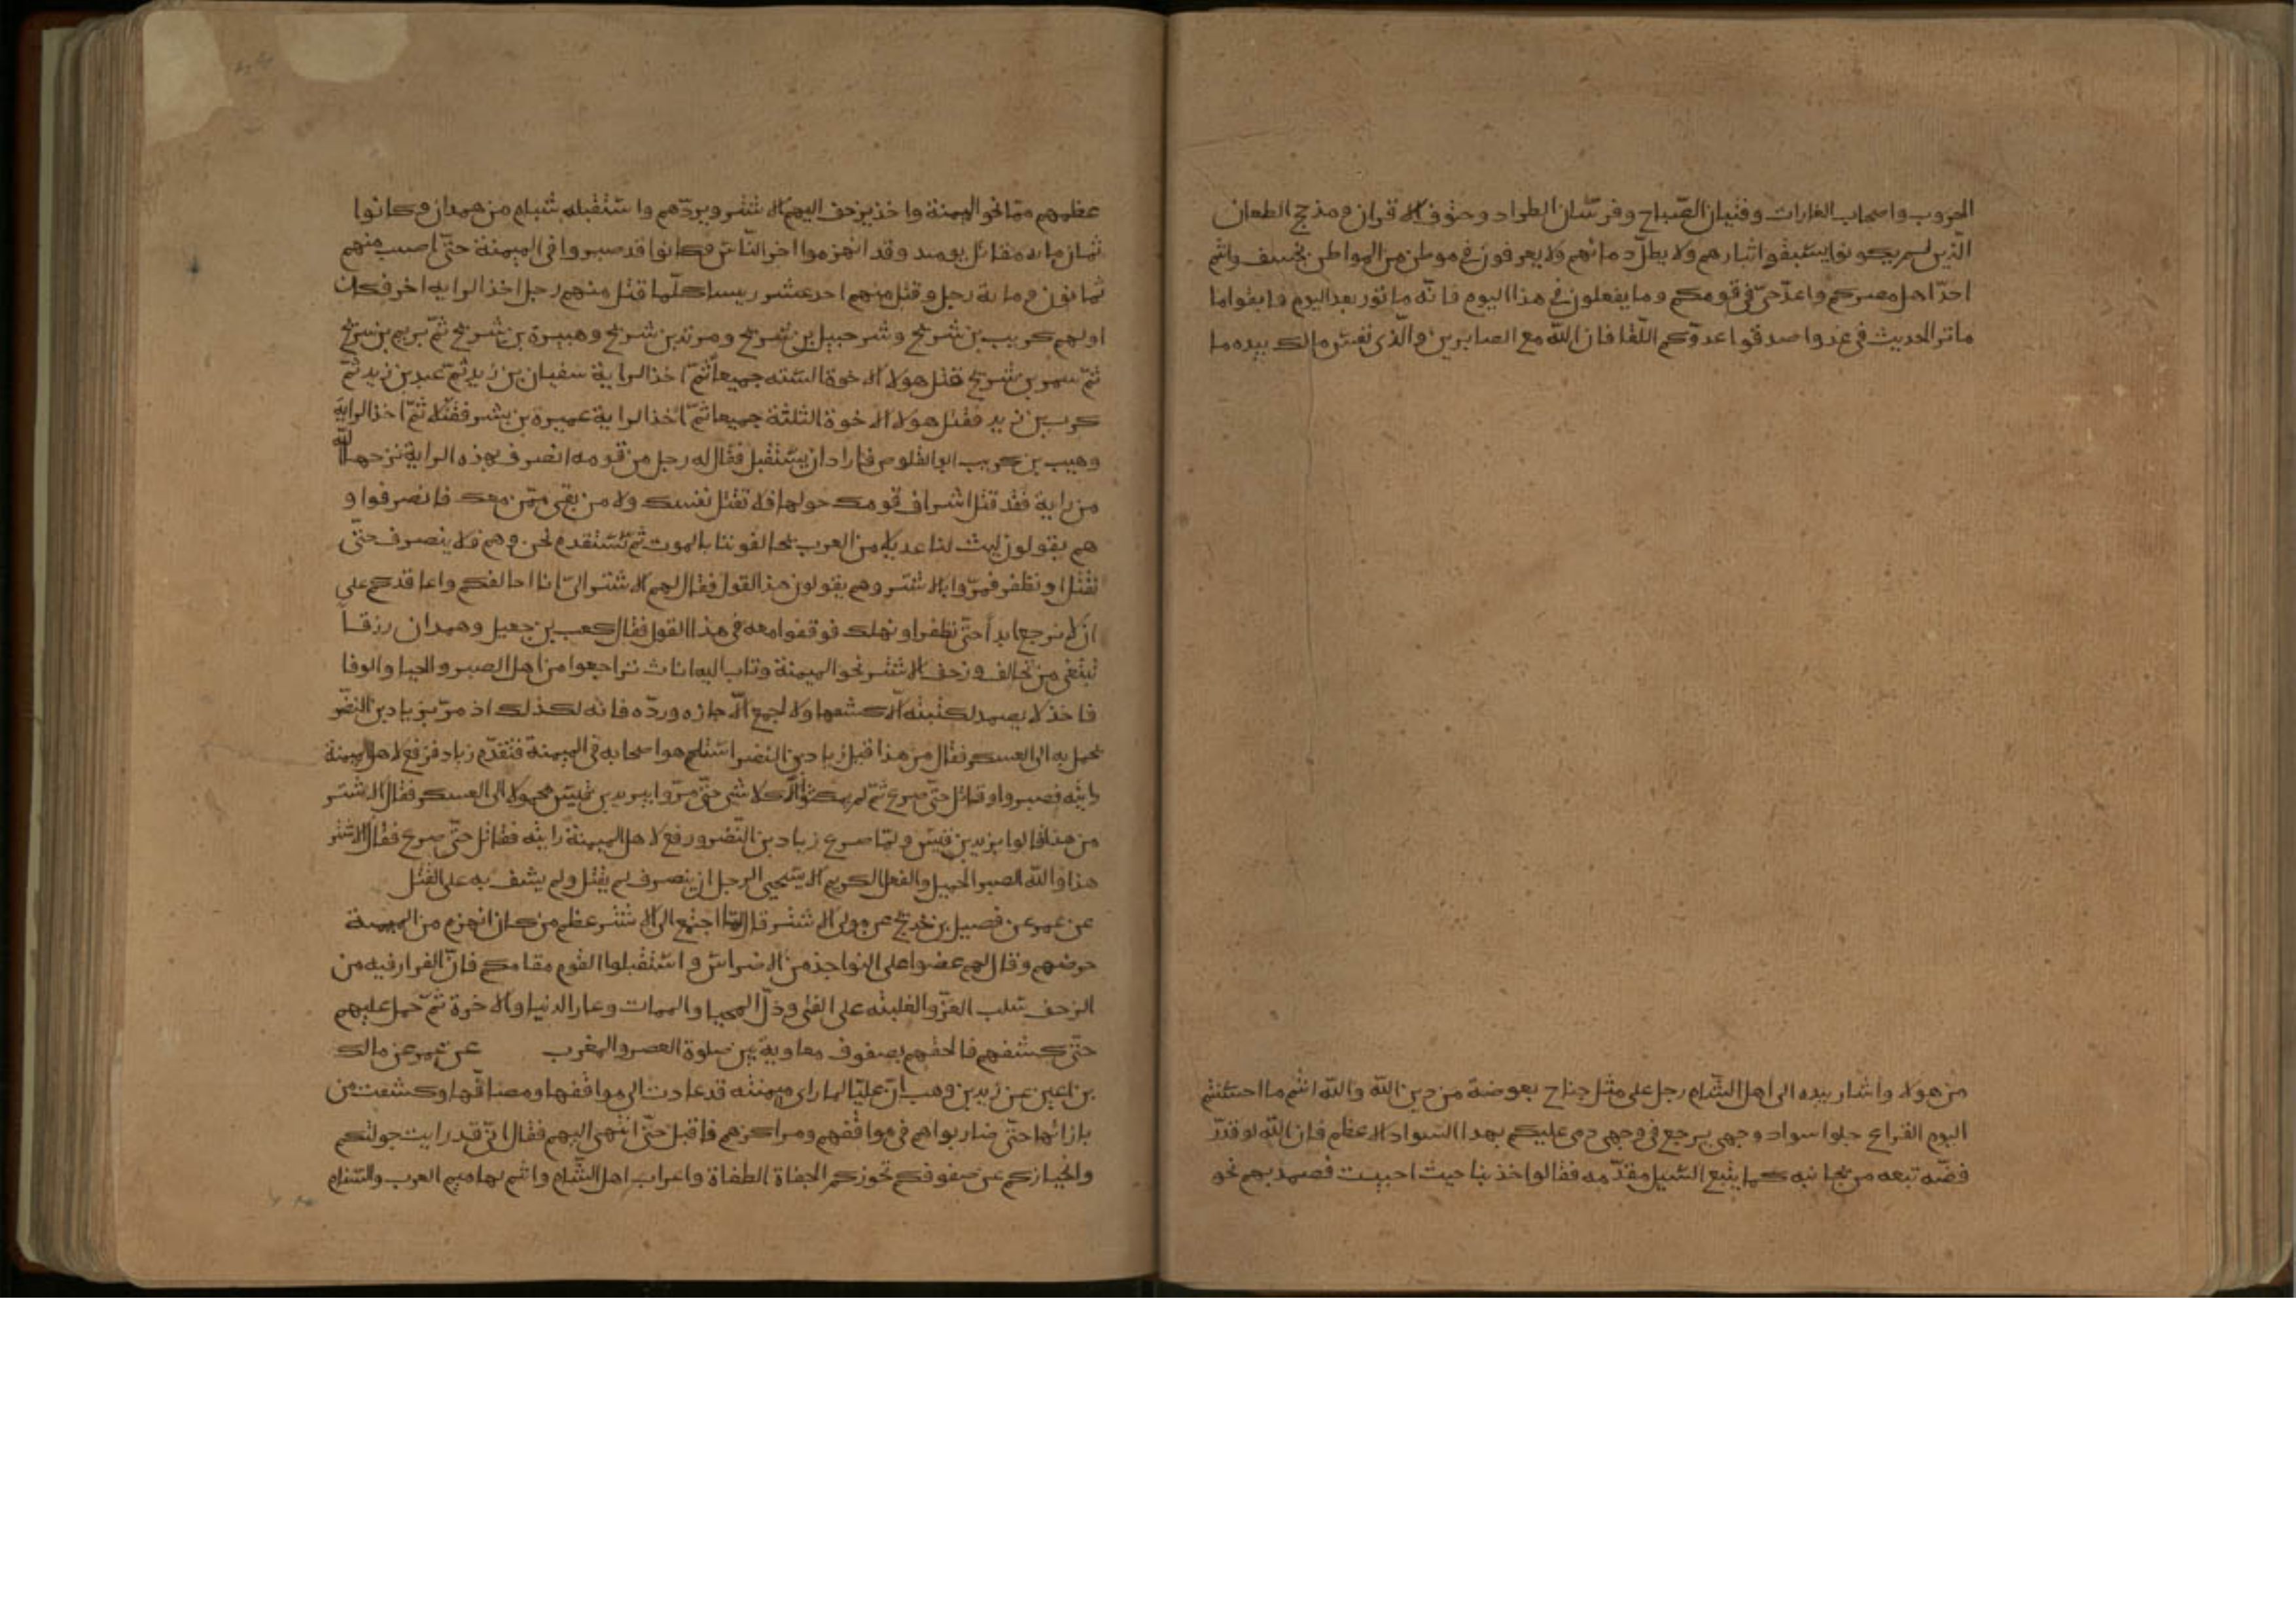 الحروب واصحاب الغارات وفتيان الصّباح وفرسّان الطراد وحتوف الاقران ومذحج الطعان
الّذين لم يكونوا يسّبقوا بثارهم ولا يطلّ دمائهم ولا يعرفون في موطن من المواطن بخسف وانتم
احدّ اهل مصركم واعدّ حيّ في قومكم وما يفعلون في هذا اليوم فانّه ماثور بعد اليوم فابقوا ما
ماثر الحديث في غد واصدقوا عدوّكم اللّقا فان اللّه مع الصابرين والّذي نفسّ مالك بيده ما
من هولا واشار بيده الى اهل الشّام رجل على مثل جناح بعوضة من دين اللّه واللّه انتم ما احسّنتم
اليوم القراع جلوا سواد وجهي يرجع في وجهي دمي عليكم بهدا السّواد الاعظم فان اللّه لو قد
فضّه تبعه من بجانبه كما يتبع السّيل مقدّمه فقالوا خذ بنا حيث احببت فصمد بهم نحو
عظمهم ممّا نحو الميمنة واخذ يزحف اليهم الاشتر ويردّهم واسّتقبله شبام من همدان وكانوا
ثمان مايه مقاتل يوميد وقد انهزموا اخر النّاسّ وكانوا قد صبروا في الميمنة حتّى اصيب منهم
ثمانون ومايه رجل وقتل منهم احد عشر ريسا كلّما قتل منهم رجل اخذ الرايه اخر فكان
اولهم كريب بن شريح وشرحبيل بن شريح ومرثد بن شريح وهبيرة بن شريح ثمّ يريم بن شريح
ثمّ سمر بن شريح قتل هولا الاخوة السّته جميعا ثمّ اخذ الراية سفيان بن زيد ثمّ عبد بن زيد ثمّ
كرب بن زيد فقتل هولا الاخوة الثلثة جميعا ثمّ اخذ الراية عميرة بن بشر فقتل ثمّ اخذ الراية
وهيب بن كريب ابو القلوص فاراد ان يسّتقبل فقال له رجل من قومه انصرف بهذه الراية نزحها اللّه
من راية فقد قتل اشراف قومك حولها فلا تقتل نفسك ولا من بقي ممّن معك فانصرفوا و
هم يقولون ليت لنا عديد من العرب يحالفوننا بالموت ثمّ نسّتقدم نحن وهم فلا ينصرف حتّى
نقتل او نظفر فمرّوا بالاشتر وهم يقولون هذا القول فقال لهم الاشتر اليّ انا احالفكم واعاقدكم على
ان لا نرجع ابداً حتّى نظفر او نهلك فوقفوا معه في هذا القول فقال كعب بن جعيل وهمدان رزقا
تبتغي من تحالف وزحف الاشتر نحو الميمنة وثاب اليه اناث تراجعوا من اهل الصبر والحيا والوفا
فاخذ لا يصمد لكتيبته الّا كشفها ولا لجمع الّا جازه وردّه فانه لكذلك اذ مرّ بزياد بن النضر
يحمل به الى العسكر فقال من هذا قيل زياد بن النضر اسّتلم هو واصحابه في الميمنة فتقدّم زياد فرفع لاهل الميمنة
رايته فصبروا وقاتل حتّى صرع ثمّ لم يمكثوا الّا كلاشي حتّى مرّوا بيزيد بن قيسّ محمولا الى العسكر فقال الاشتر
من هذا قالوا يزيد بن قيسّ ولمّا صرع زياد بن النّضر ورفع لاهل الميمنة رايته فقاتل حتّى صرع فقال الاشتر
هذا واللّه الصبر الجميل والفعل الكريم الا يسّتحيى الرجل ان ينصرف لم يقتل ولم يشف به على القتل
عن عمر عن فضيل بن خديج عن مولى الاشتر قال لمّا اجتمع الى الاشتر عظم من كان انهزم من الميمنة
حرضهم وقال لهم عضوا على النواجذ من الاضراسّ واسّتقبلوا القوم مقامكم فانّ الفرار فيه من
الزحف سّلب العزّ والغلبته على الفئ وذلّ المحيا والممات وعار الدنيا والاخرة ثمّ حمل عليهم
حتّى كشفهم فالحقهم بصفوف معاوية بين صلوة العصر والمغرب عن عمر عن مالك
بن اعين عن زيد بن وهب انّ عليّا لما راى ميمنته قد عادت الى مواقفها ومصافّها وكشفت من
بازائها حتّى ضاربواهم في مواقفهم ومراكزهم فاقبل حتّى انتهى اليهم فقال انّي قد رايت جولتكم
وانحيازكم عن صفوفكم تحوزكم الجفاة الطغاة واعراب اهل الشّام وانتم لهاميم العرب والسّنام